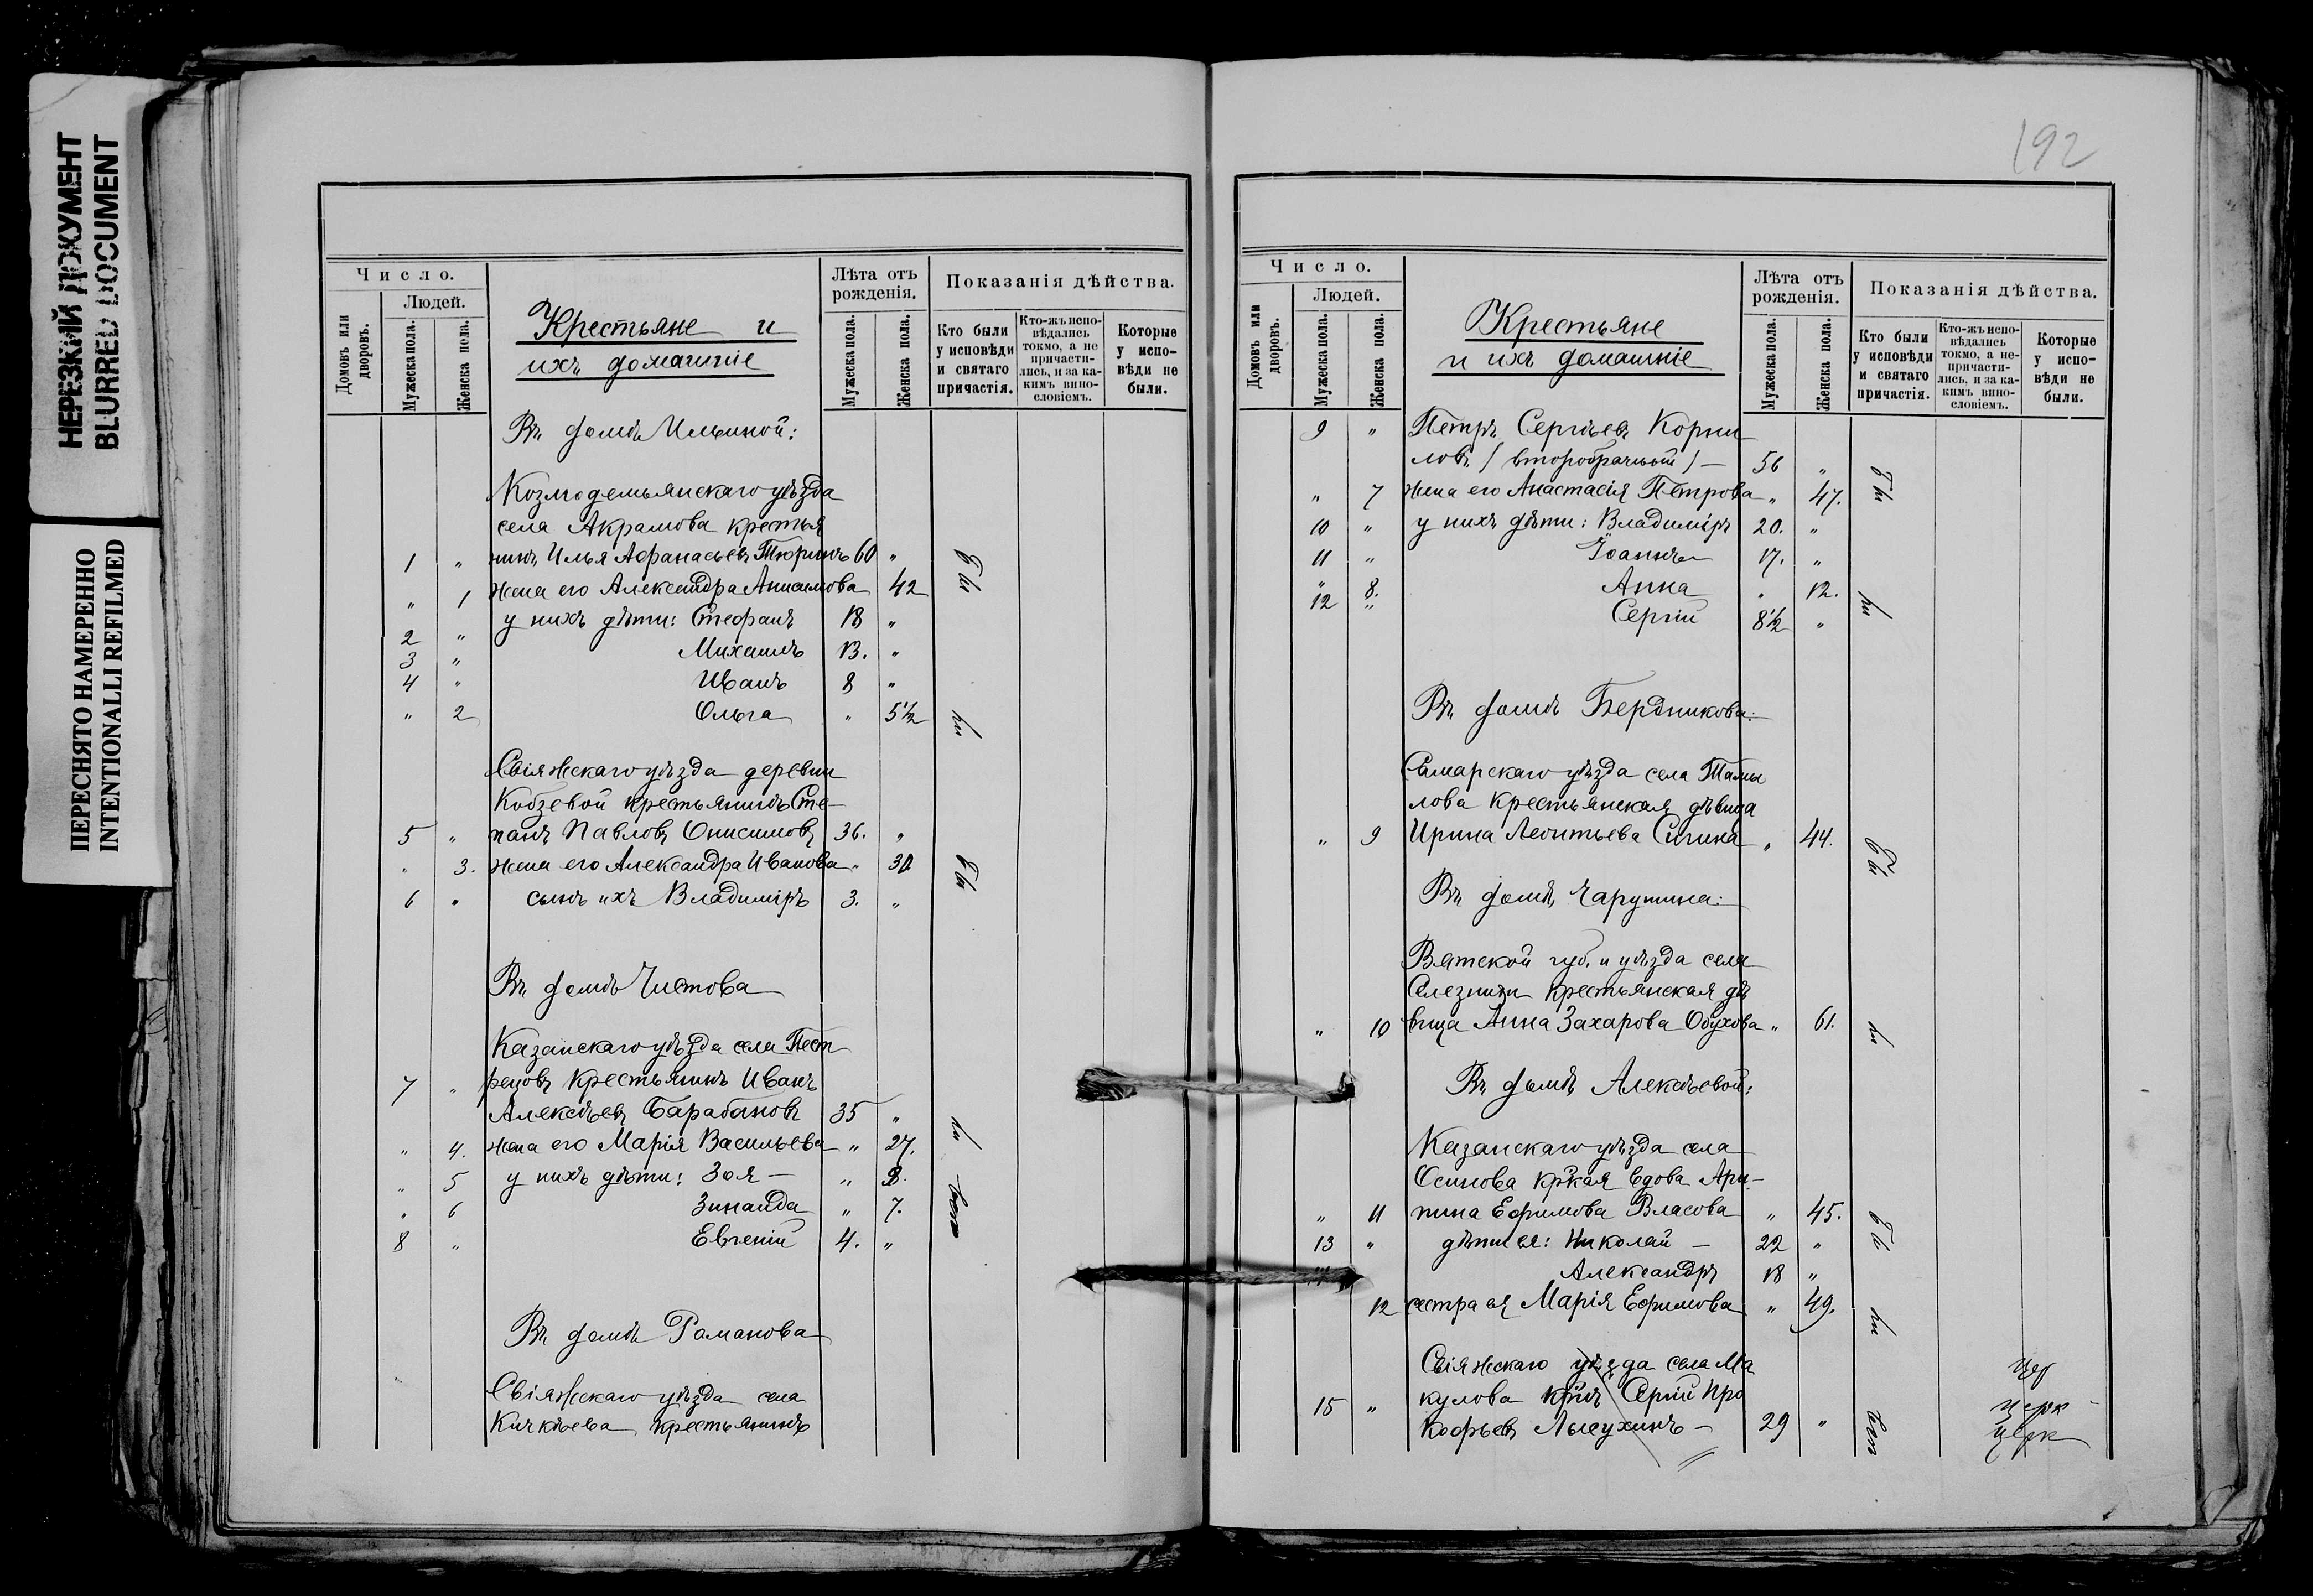 НЕРЕЗКИЙ ДОКУМЕНТ
BLURRED DOCUMENT
ПЕРЕСНЯТО НАМЕРЕННО
INTENTIONALLI REFILMED
Число.
Людей.
Домовъ или дворовъ.
Мужеска пола.
Женска пола.
Крестьяне и
ихъ домашніе
Лѣта отъ рожденія.
Мужеска пола.
Женска пола.
Показанія дѣйства.
Кто были у исповѣди и святаго причастія.
Кто-жъ исповѣдались токмо, а не причастились, и за какимъ винословіемъ.
Которые у исповѣди не были.
Въ домѣ Ильиной:
Козмодемьянскаго уѣзда
села Акрамова крестья
1 " нинъ Илья Афанасьевъ Тюринъ 60 "
" 1 жена его Александра Анисимова 42
2 " у нихъ дѣти: Стефанъ 18 "
3 " Михаилъ 13. "
4 " Иванъ 8 "
" 2 Ольга " 5½
Свіяжскаго уѣзда деревни
Кобзевой крестьянинъ Сте-
5 " панъ Павловъ Онисимовъ 36. "
" 3. жена его Александра Иванова " 30.
6 " сынъ ихъ Владиміръ 3. "
Въ домѣ Чистова
Казанскаго уѣзда села Пест
7 " рецовъ крестьянинъ Иванъ
Алексѣевъ Барабановъ 35 "
" 4. жена его Марія Васильева " 27.
" 5 у нихъ дѣти: Зоя — " 8.
" 6 Зинаида " 7.
8 " Евгеній 4. "
Въ домѣ Романова
Свіяжскаго уѣзда села
Кичкѣева крестьянинъ
192
Число.
Людей.
Домовъ или дворовъ.
Мужеска пола.
Женска пола.
Крестьяне
и ихъ домашніе
Лѣта отъ рожденія.
Мужеска пола.
Женска пола.
Показанія дѣйства.
Кто были у исповѣди и святаго причастія.
Кто-жъ исповѣдались токмо, а не причастились, и за какимъ винословіемъ.
Которые у исповѣди не были.
9 " Петръ Сергѣевъ Корни
ловъ / второбрачный / — 56 "
" 7 жена его Анастасія Петрова " 47.
10 " у нихъ дѣти: Владиміръ 20. "
11 " Іоаннъ 17. "
" 8. Анна " 12.
12 " Сергій 8½ "
Въ домѣ Бердникова:
Самарскаго уѣзда села Тамы
лова крестьянская дѣвица
" 9 Ирина Леонтьева Сигина " 44.
Въ домѣ Чарушина:
Вятской губ. и уѣзда села
Селезнихи крестьянская дѣ
" 10 вица Анна Захарова Обухова " 61.
Въ домѣ Алексѣевой:
Казанскаго уѣзда села
Осинова кркая вдова Ари-
" 11 пина Ефимова Власова " 45.
13 " дѣти ея: Николай — 22 "
Александръ 18 "
12 сестра ея Марія Ефимова " 49.
Свіяжскаго уѣзда села Ма
15 " кулова крнъ Сергій Про
кофьевъ Лысухинъ — 29 "
цер
церк
церк